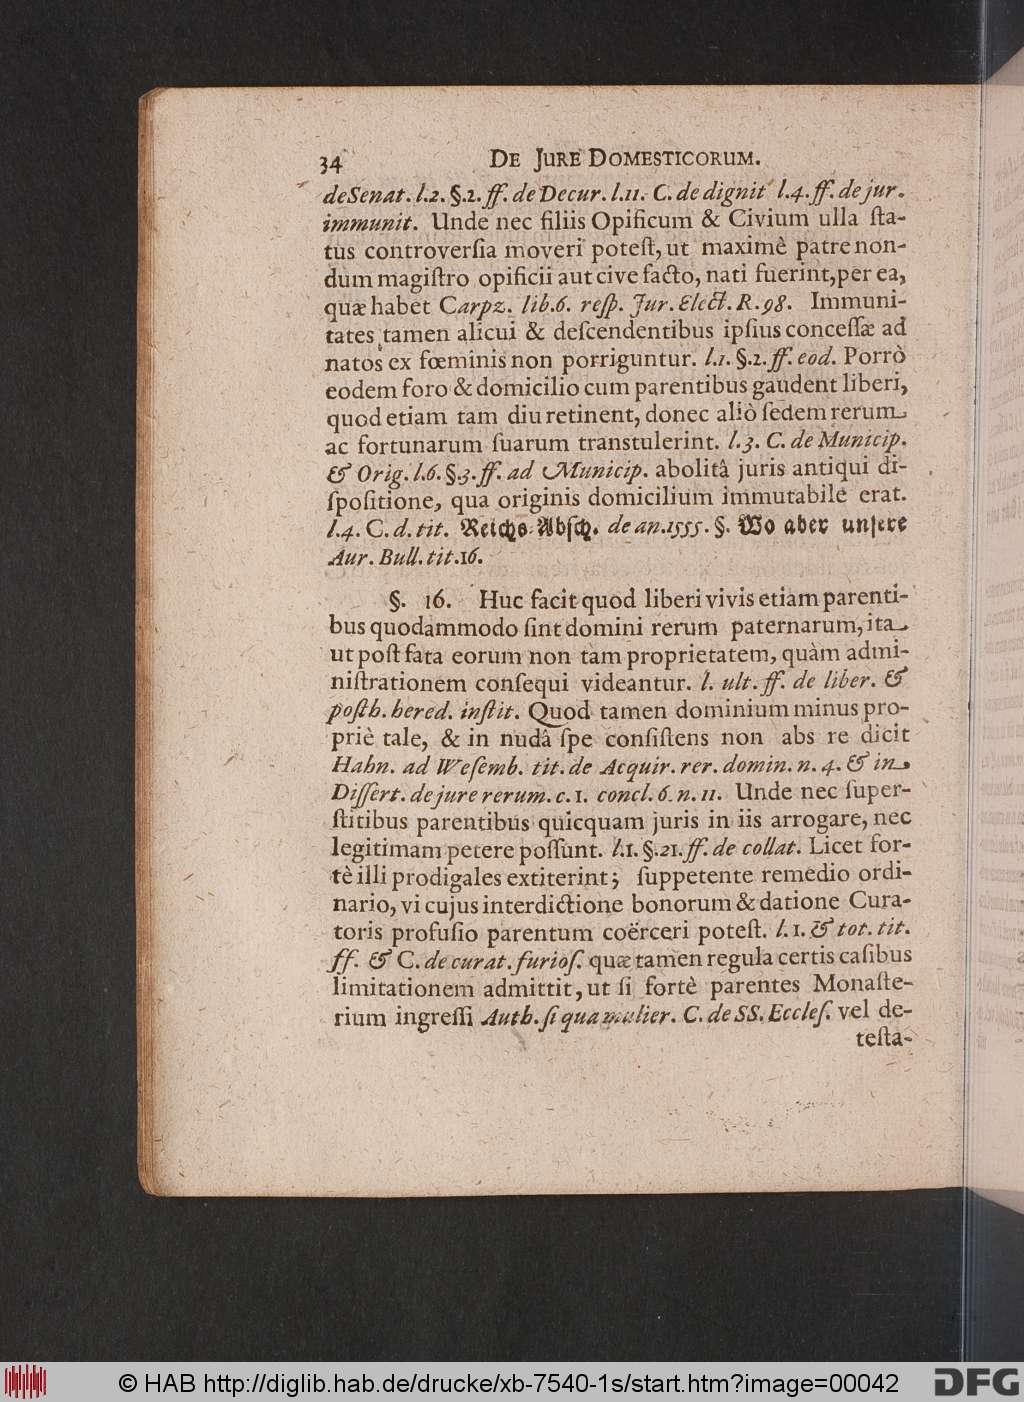 34 DE JURE DOMESTICORUM.
de Senat. l.2. §.2. ff. de Decur. l.11. C. de dignit l.4. ff. de jur.
immunit. Unde nec filiis Opificum & Civium ulla ſta-
tus controverſia moveri poteſt, ut maximè patre non-
dum magiſtro opificii aut cive facto, nati fuerint, per ea,
quæ habet Carpz. lib.6. reſp. Jur. Elect. R.98. Immuni-
tates tamen alicui & deſcendentibus ipſius conceſſæ ad
natos ex fœminis non porriguntur. l.1. §.2. ff. eod. Porrò
eodem foro & domicilio cum parentibus gaudent liberi,
quod etiam tam diu retinent, donec aliò ſedem rerum
ac fortunarum ſuarum transtulerint. l.3. C. de Municip.
& Orig. l.6. §.3. ff. ad Municip. abolitâ juris antiqui di-
ſpoſitione, qua originis domicilium immutabile erat.
l.4. C. d. tit. Reichs-Abſch. de an. 1555. §. Wo aber unſere
Aur. Bull. tit. 16.
§. 16. Huc facit quod liberi vivis etiam parenti-
bus quodammodo ſint domini rerum paternarum, ita
ut poſt fata eorum non tàm proprietatem, quàm admi-
niſtrationem conſequi videantur. l. ult. ff. de liber. &
poſth. hered. inſtit. Quod tamen dominium minus pro-
priè tale, & in nudâ ſpe conſiſtens non abs re dicit
Hahn. ad Weſemb. tit. de Acquir. rer. domin. n. 4. & in
Diſſert. de jure rerum. c. 1. concl. 6. n. 11. Unde nec ſuper-
ſtitibus parentibus quicquam juris in iis arrogare, nec
legitimam petere poſſunt. l.1. §.21. ff. de collat. Licet for-
tè illi prodigales extiterint; ſuppetente remedio ordi-
nario, vi cujus interdictione bonorum & datione Cura-
toris profuſio parentum coërceri poteſt. l. 1. & tot. tit.
ff. & C. de curat. furioſ. quæ tamen regula certis caſibus
limitationem admittit, ut ſi fortè parentes Monaſte-
rium ingreſſi Auth. ſi qua mulier. C. de SS. Eccleſ. vel de-
teſta-
© HAB http://diglib.hab.de/drucke/xb-7540-1s/start.htm?image=00042
DFG